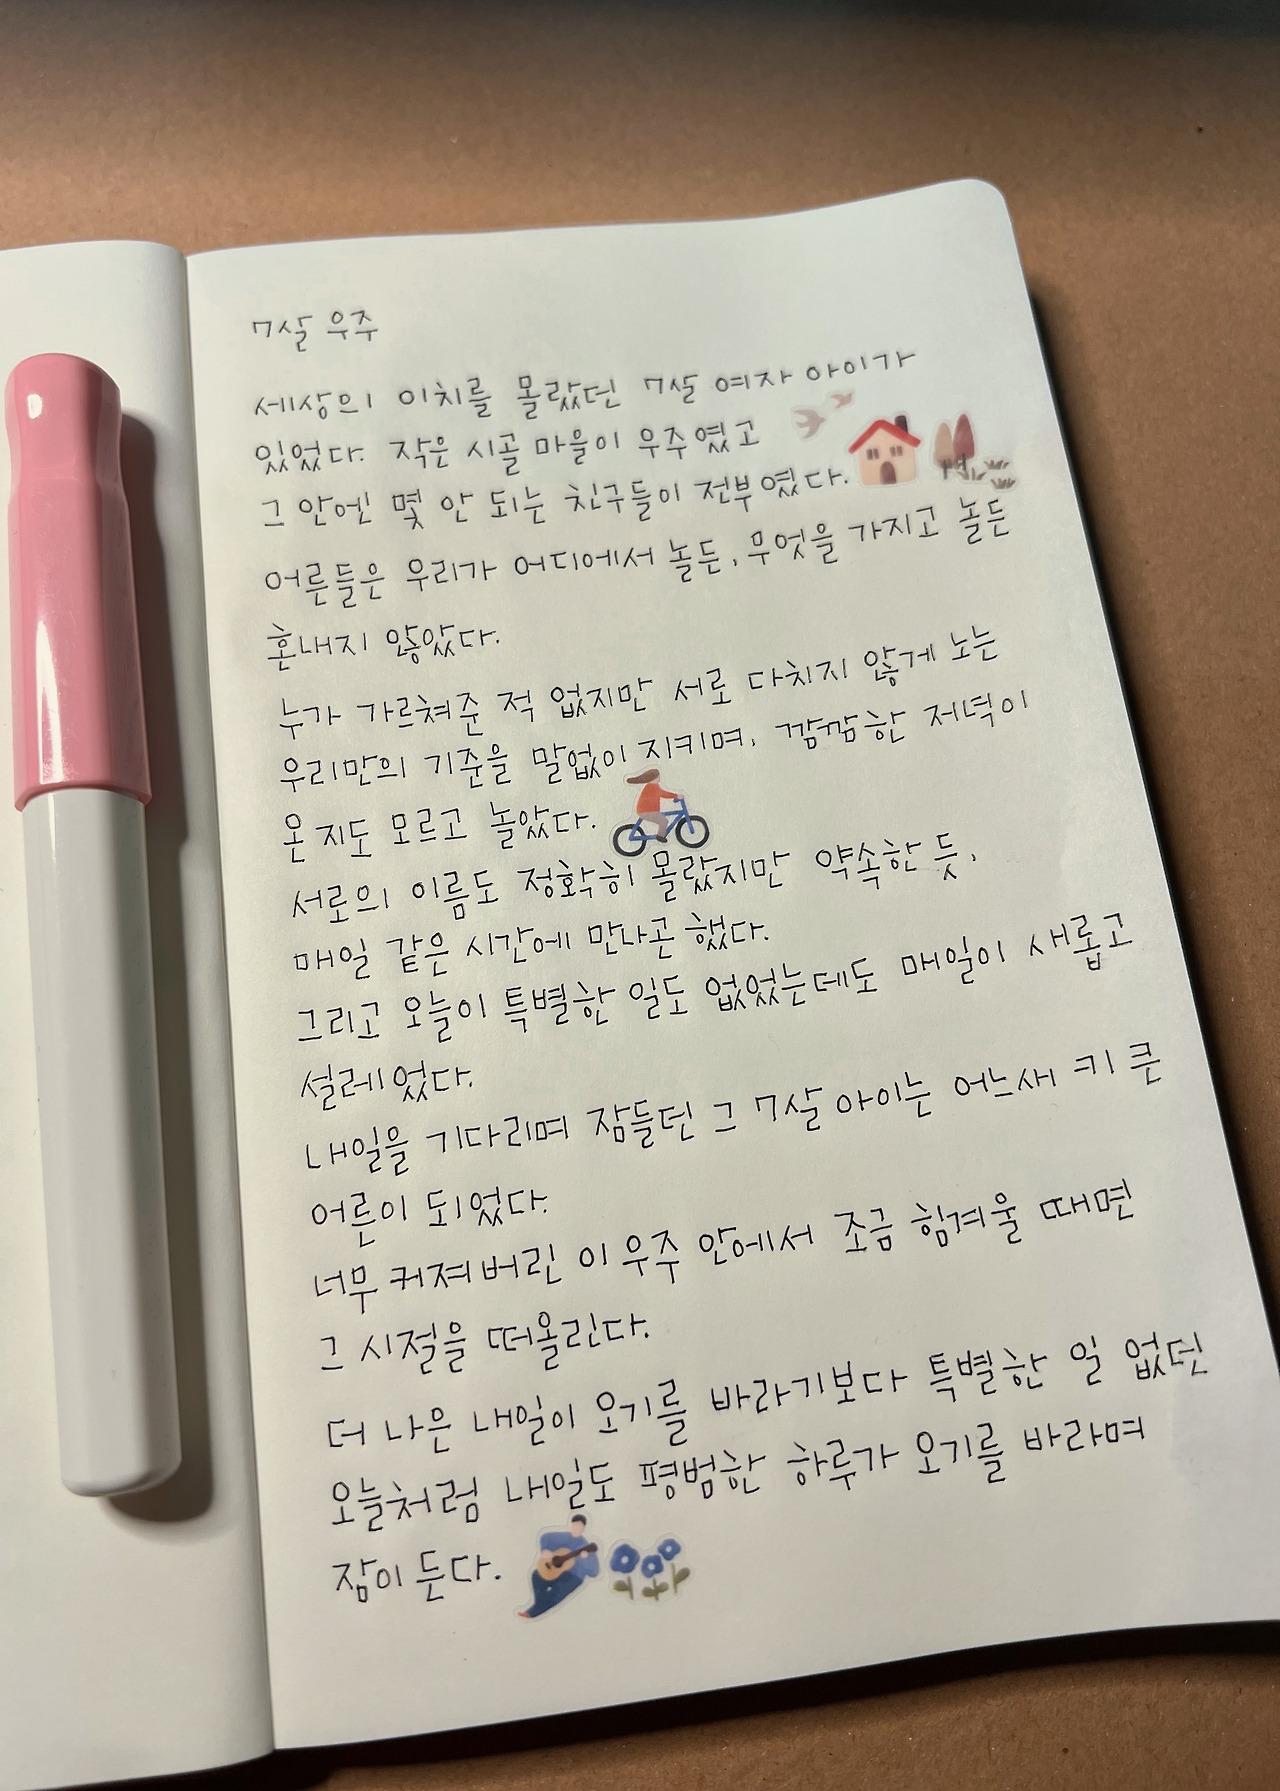 7살 우주
세상의 이치를 몰랐던 7살 여자 아이가
있었다. 작은 시골 마을이 우주였고
그 안엔 몇 안 되는 친구들이 전부였다.
어른들은 우리가 어디에서 놀든, 무엇을 가지고 놀든
혼내지 않았다.
누가 가르쳐준 적 없지만 서로 다치지 않게 노는
우리만의 기준을 말없이 지키며, 깜깜한 저녁이
온 지도 모르고 놀았다.
서로의 이름도 정확히 몰랐지만 약속한 듯,
매일 같은 시간에 만나곤 했다.
그리고 오늘이 특별한 일도 없었는데도 매일이 새롭고
설레었다.
내일을 기다리며 잠들던 그 7살 아이는 어느새 키 큰
어른이 되었다.
너무 커져버린 이 우주 안에서 조금 힘겨울 때면
그 시절을 떠올린다.
더 나은 내일이 오기를 바라기보다 특별한 일 없던
오늘처럼 내일도 평범한 하루가 오기를 바라며
잠이 든다.